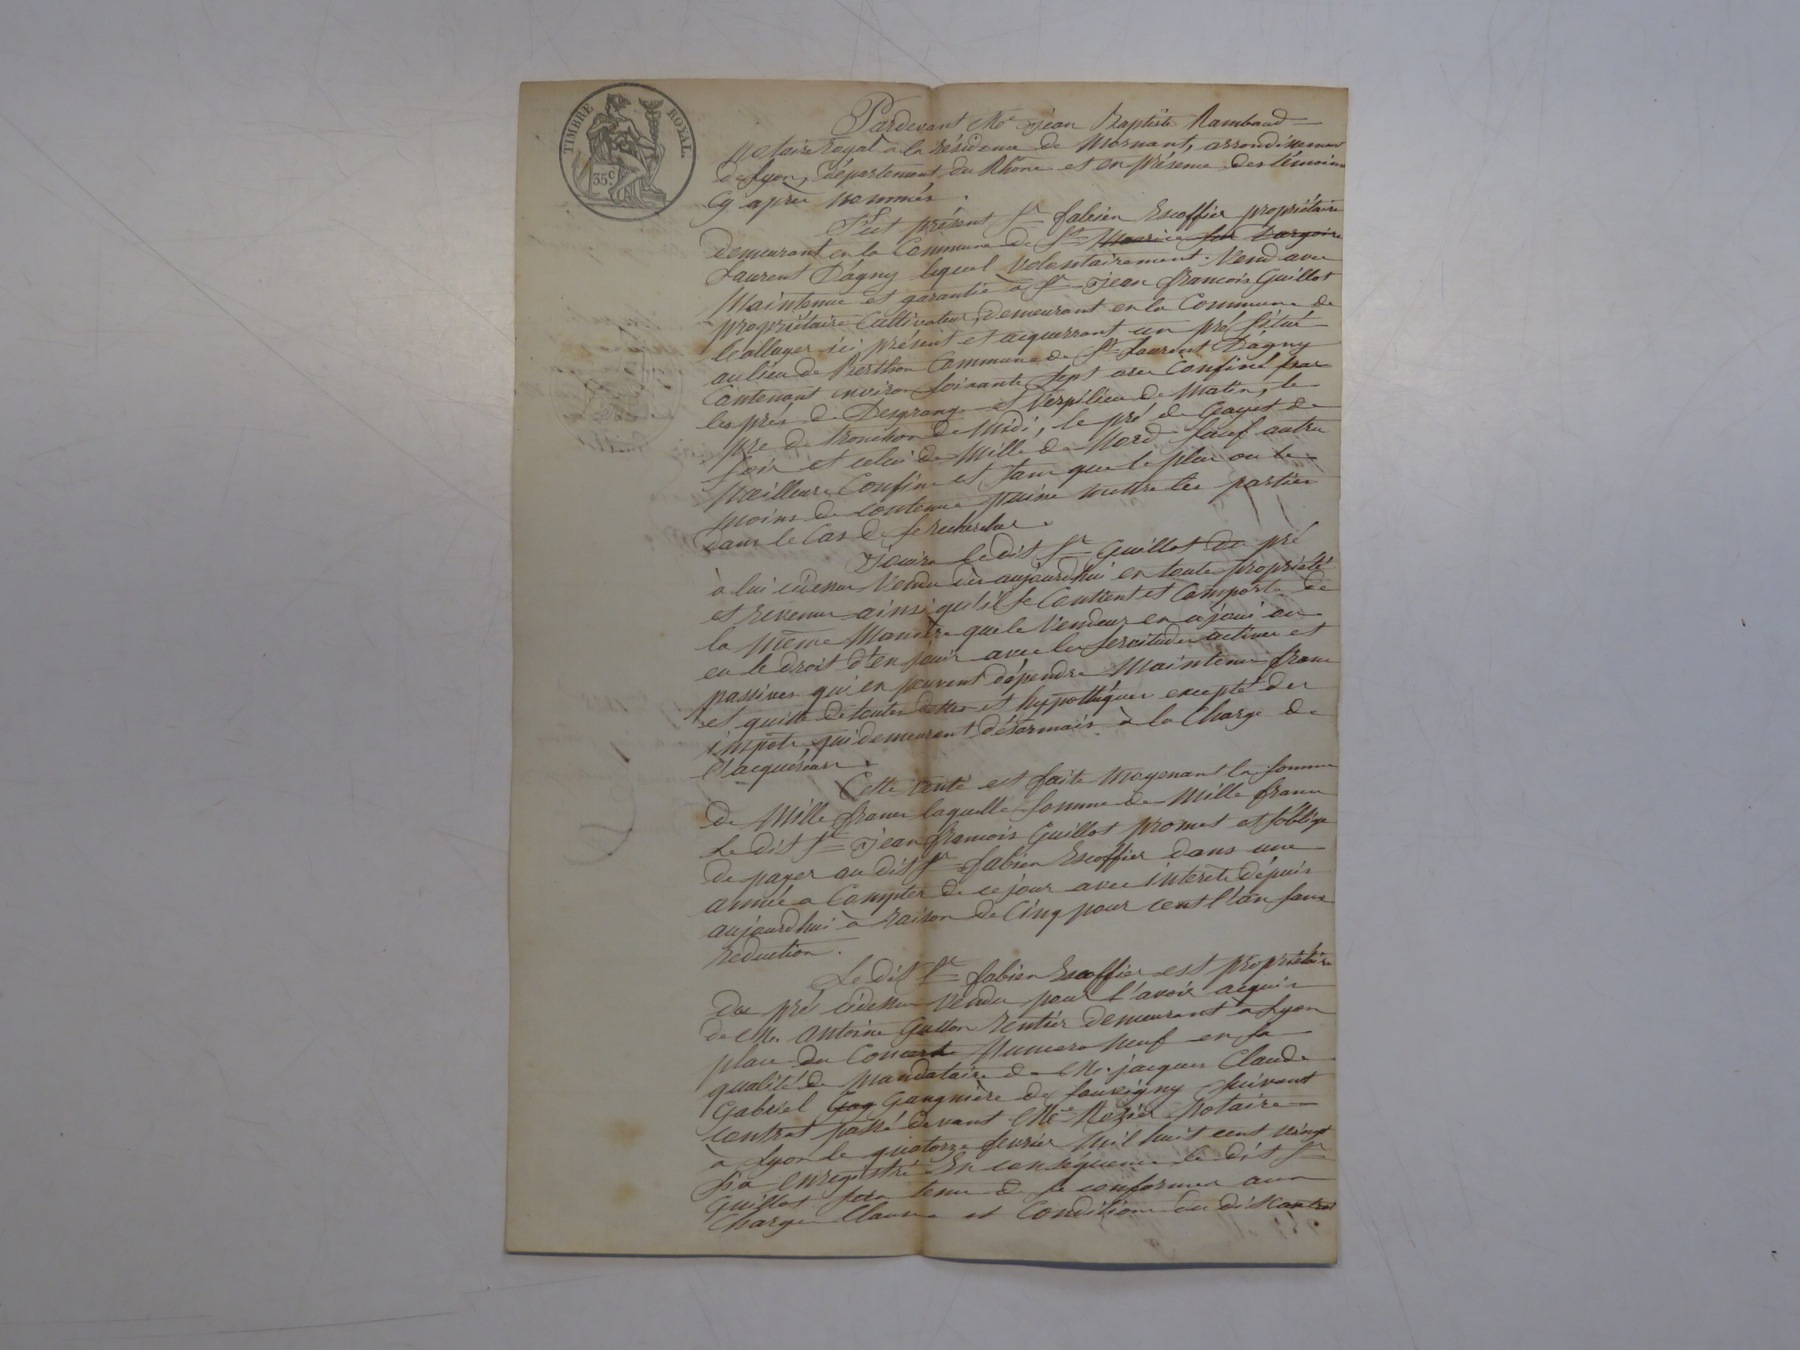 TIMBRE ROYAL.
35 c
Pardevant Me Jean Baptiste Rambaud
notaire royal à la résidence de Mornant, arrondissement
de Lyon, département du Rhône et en présence des témoins
Cy après nommés.
Fut présent Sr fabien Escoffier propriétaire
demeurant en la Commune de St Maurice sur Dargoire
Laurent Dagny lequel Volontairement Vend avec
Maintenue et garantie à Sr Jean francois Guillot
propriétaire Cultivateur, demeurant en la Commune de
ici présent et acquerrant un pré situé
au lieu de Berthon Commune de St Laurent Dagny
Contenant environ soixante sept ares Confiné par
les prés de Desgrange et Verpilieu de Matin, le
pré de tronchon de Midi, le pré de Gayet de
soir et celui de Mille de Nord sauf autre
meilleurs Confins et sans que le plus ou le
moins de contenue puisse mettre les parties
dans le Cas de se rechercher.
Jouira le dit Sr Guillot du pré
à lui cidessus Vendu dès aujourd'hui en toute propriété
et revenu ainsi qu'il se Contient et Comporte de
la même Manière que le Vendeur en a joui ou
eu le droit d'en jouir avec les servitudes actives et
passives qui en peuvent dépendre Maintenu franc
et quitte de toutes dettes et hypothéques excepté des
impots qui demeurent désormais à la Charge de
l'acquéreur.
Cette vente est faite moyenant la somme
de Mille francs laquelle somme de Mille francs
Le dit Sr Jean francois Guillot promet et s'oblige
de payer au dit Sr fabien Escoffier dans une
année a Compter de ce jour avec intérets dépuis
aujourd'hui à raison de Cinq pour cent l'an sans
reduction.
Le dit Sr fabien Escoffier est propriétaire
du pré cidessus vendu pour l'avoir acquis
de Mr. antoine Guillon rentier demeurant à Lyon
place du Concert Numero neuf en sa
qualité de mandataire de Mr. jacques Claude
Gabriel Gag Gangnière de souvigny suivant
contrat passé devant Me Rozier Notaire
à Lyon le quatorze fevrier mil huit cent vingt
six enregistré En conséquence le dit Sr
Guillot sera tenu de se conformer aux
Charges Clauses et Conditions du dit Contrat